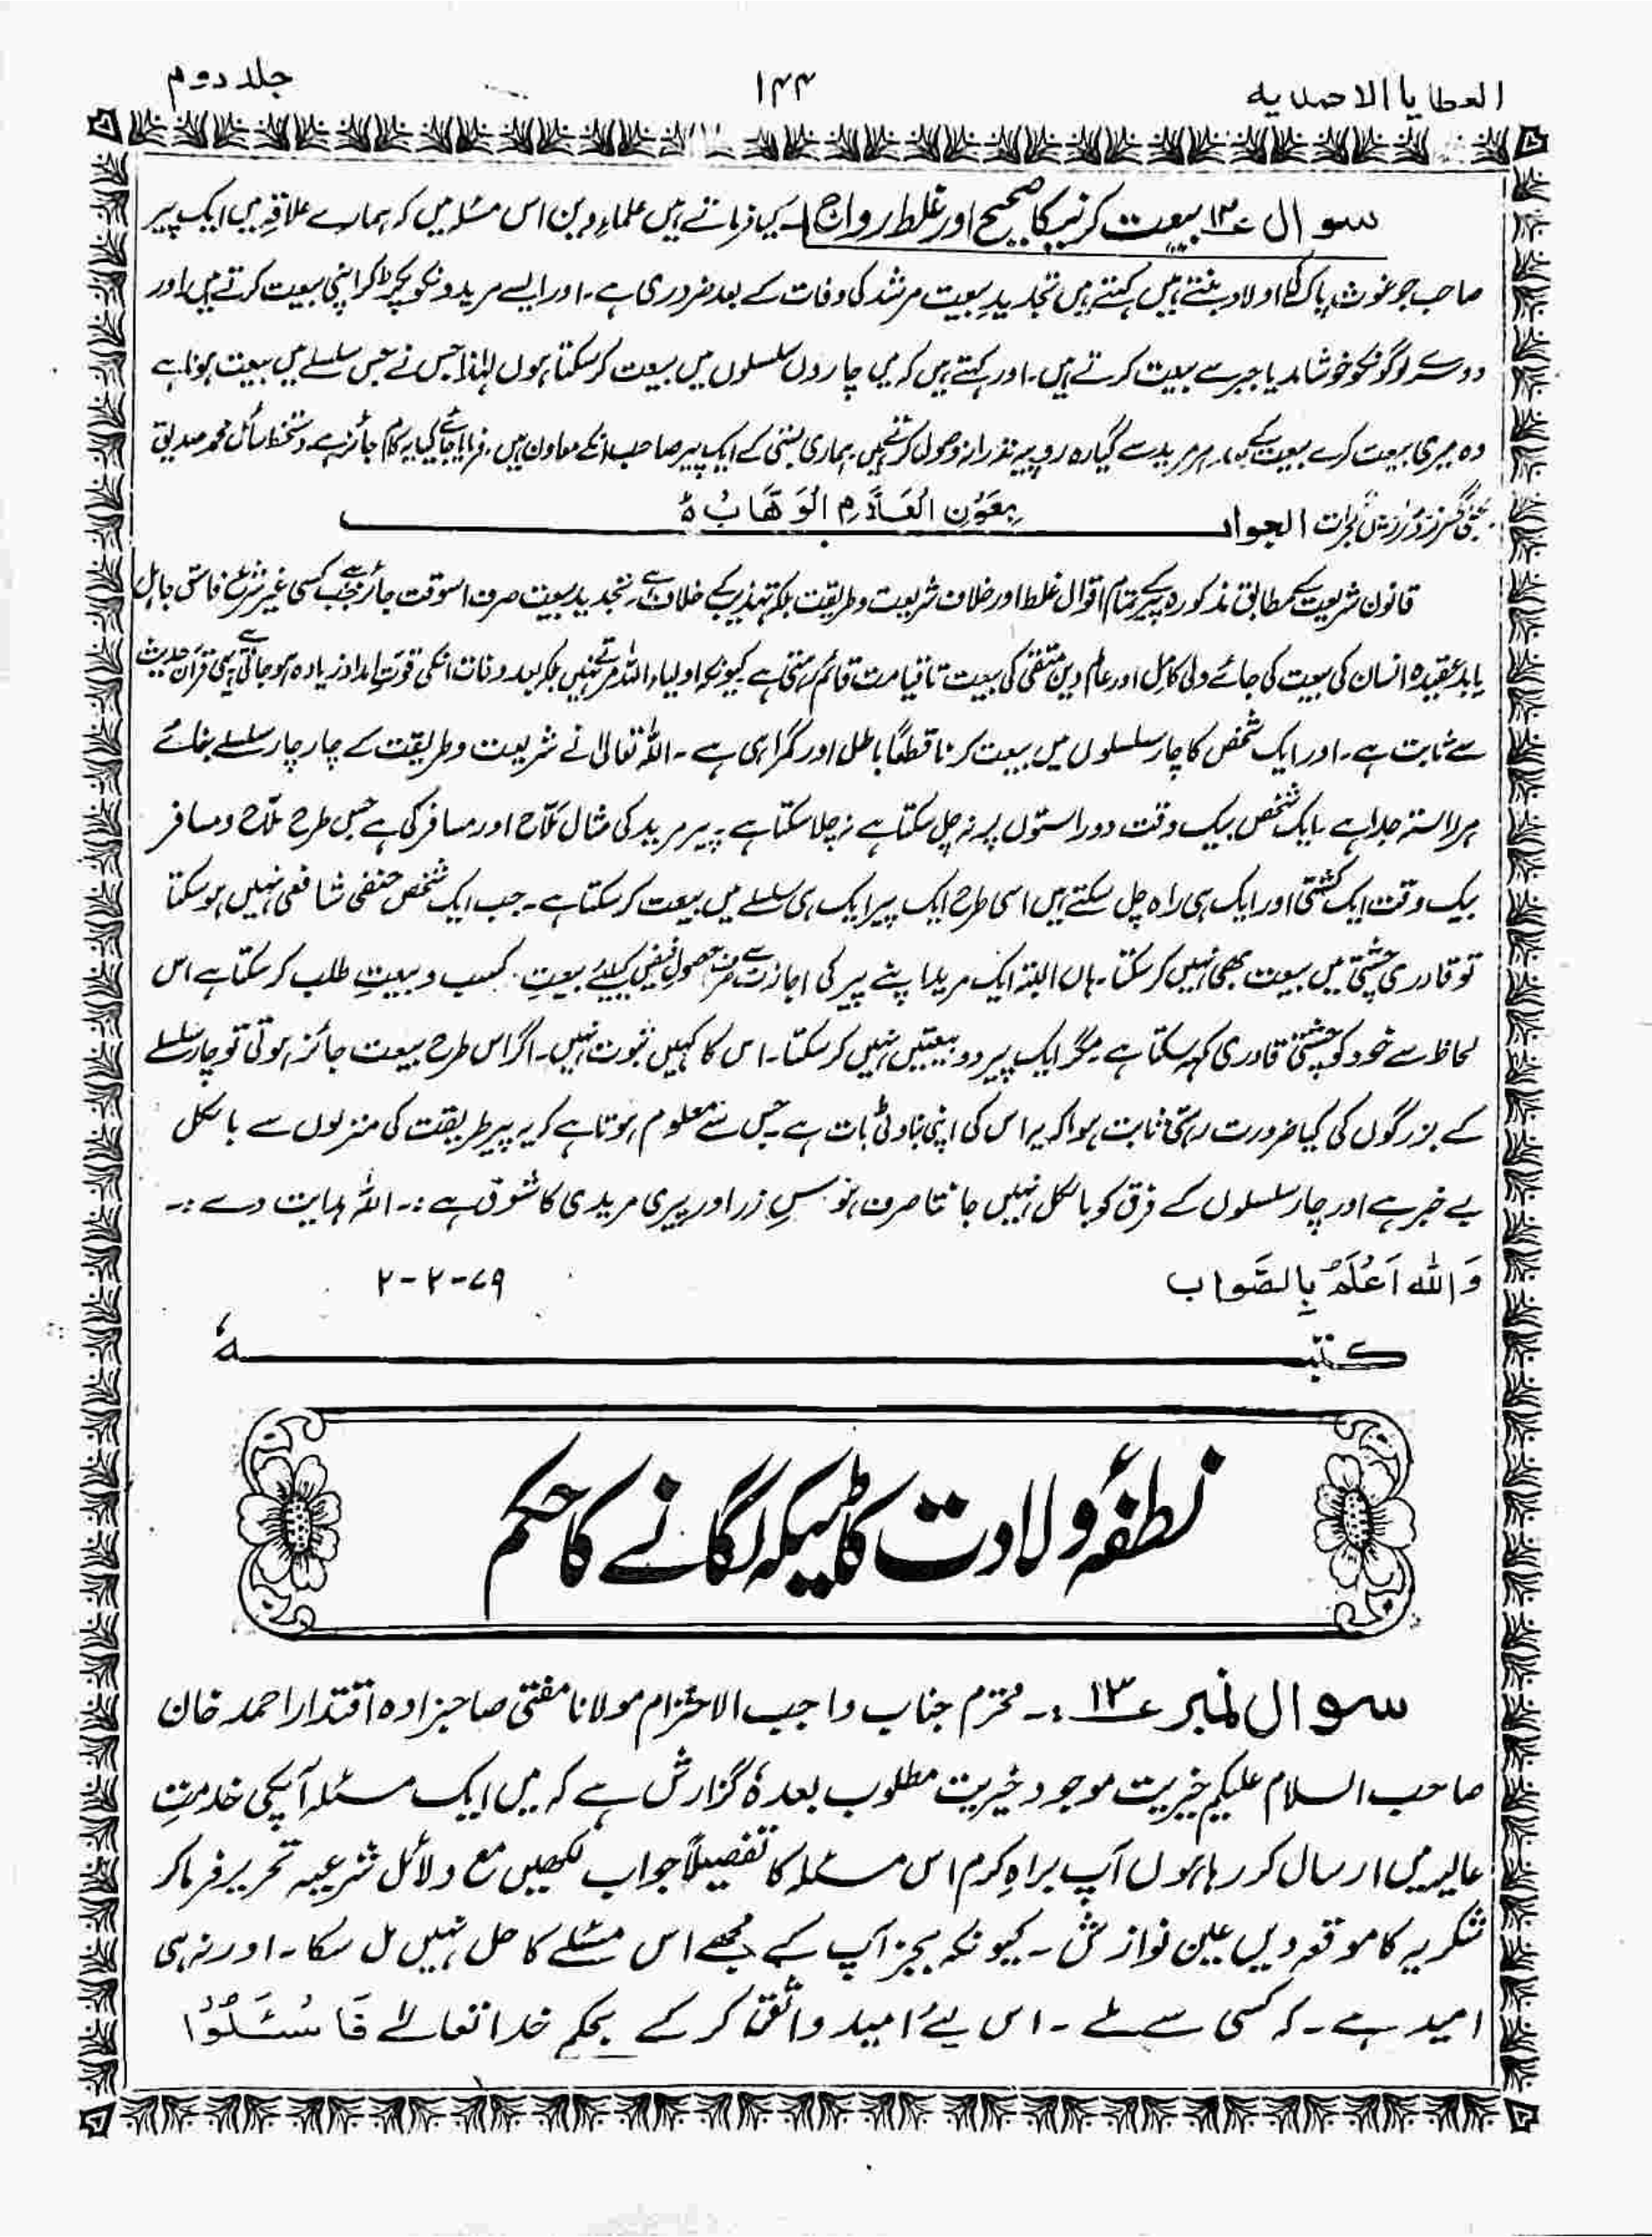 العطایا الاحمدیہ
۱۴۴
جلد دوم
سوال ۱۳ بیعت کرنیکا صحیح اور غلط رواج کیا فرماتے ہیں علماءِ دین اس مسئلہ میں کہ ہمارے علاقہ میں ایک پیر
صاحب جو غوث پاک کی اولاد بنتے ہیں کہتے ہیں تجدیدِ بیعت مرشد کی وفات کے بعد ضروری ہے۔ اور ایسے مریدونکو پکڑ کر اپنی بیعت کرتے ہیں اور
دوسرے لوگونکو خوشامد یا جبر سے بیعت کرتے ہیں۔ اور کہتے ہیں کہ میں چاروں سلسلوں میں بیعت کر سکتا ہوں لہٰذا جس نے جس سلسلے میں بیعت ہونا ہے
وہ میری بیعت کرے بیعت کے بعد ہر مرید سے گیارہ روپیہ نذرانہ وصول کرتے ہیں۔ ہماری بستی کے ایک پیر صاحب انکے معاون ہیں۔ فرمایا جائے کیا یہ کام جائز ہے۔ دستخط سائل محمد صدیق
گجرات الجواب
بِعَوْنِ الْعَلَّامِ الْوَهَّابُ ط
قانون شریعت کے مطابق مذکورہ پیر کے تمام اقوال غلط اور خلاف شریعت و طریقت بلکہ تہذیب کے خلاف ہے۔ تجدید بیعت صرف اسوقت جائز ہے جب کسی غیر شرع فاسق جاہل
یا بد عقیدہ انسان کی بیعت کی جائے ولی کامل اور عالم دین متقی کی بیعت تا قیامت قائم رہتی ہے کیونکہ اولیاء اللہ مرتے نہیں بلکہ بعد وفات انکی قوتِ امداد زیادہ ہو جاتی ہے یہی قرآن حدیث
سے ثابت ہے۔ اور ایک شخص کا چار سلسلوں میں بیعت کرنا قطعًا باطل اور گمراہی ہے۔ اللہ تعالیٰ نے شریعت و طریقت کے چار چار سلسلے بنائے
ہر راستہ جدا ہے۔ ایک شخص بیک وقت دو راستوں پر نہ چل سکتا ہے نہ چلا سکتا ہے۔ پیر مرید کی مثال مَلّاح اور مسافر کی ہے جس طرح ملّاح و مسافر
بیک وقت ایک کشتی اور ایک ہی راہ چل سکتے ہیں اسی طرح ایک پیر ایک ہی سلسلے میں بیعت کر سکتا ہے۔ جب ایک شخص حنفی شافعی نہیں ہو سکتا
تو قادری چشتی میں بیعت بھی نہیں کر سکتا۔ ہاں البتہ ایک مرید اپنے پیر کی اجازت سے صرف حصولِ فیض کیلئے بیعتِ کسب و بیعتِ طلب کر سکتا ہے اس
لحاظ سے خود کو چشتی قادری کہہ سکتا ہے مگر ایک پیر دو بیعتیں نہیں کر سکتا۔ اس کا کہیں ثبوت نہیں۔ اگر اس طرح بیعت جائز ہوتی تو چار سلسلے
کے بزرگوں کی کیا ضرورت رہتی ثابت ہوا کہ یہ اس کی اپنی بناوٹی بات ہے جس سے معلوم ہوتا ہے کہ یہ پیر طریقت کی منزلوں سے بالکل
بے خبر ہے اور چار سلسلوں کے فرق کو بالکل نہیں جانتا صرف ہوسِ زر اور پیری مریدی کا شوق ہے :۔ اللہ ہدایت دے :۔
وَاللّٰہ اَعْلَمُ بِالصَّواب ۲-۲-۷۹
کتبہٗ
نطفۂ ولادت کا ٹیکہ لگانے کا حکم
سوال نمبر ۱۳ :۔ محترم جناب واجب الاحترام مولانا مفتی صاحبزادہ اقتدار احمد خان
صاحب السلام علیکم خیریت موجود خیریت مطلوب بعدہٗ گزارش ہے کہ میں ایک مسئلہ آپکی خدمتِ
عالیہ میں ارسال کر رہا ہوں آپ براہِ کرم اس مسئلہ کا تفصیلًا جواب لکھیں مع دلائل شرعیہ تحریر فرما کر
شکریہ کا موقعہ دیں عین نوازش۔ کیونکہ بجز آپ کے مجھے اس مسئلے کا حل نہیں مل سکا۔ اور نہ ہی
امید ہے۔ کہ کسی سے ملے۔ اس لیے امید واثق کر کے بحکم خدا تعالےٰ فَاسْئَلُوْا